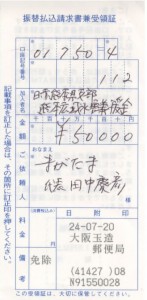 振替払込請求書兼受領証
口座記号番号
01 7 50 = 4
112
加入者名
日本赤十字社
金額
¥50000
ご依頼人
おなまえ
まがたま
代 田中慶彦
料金
(消費税込み)
円
日附印
備考
免除
24-07-20
大阪玉造
郵便局
(41427)08
N91550028
記載事項を訂正した場合は、その箇所に訂正印を押してください。
この受領証は、大切に保管してください。